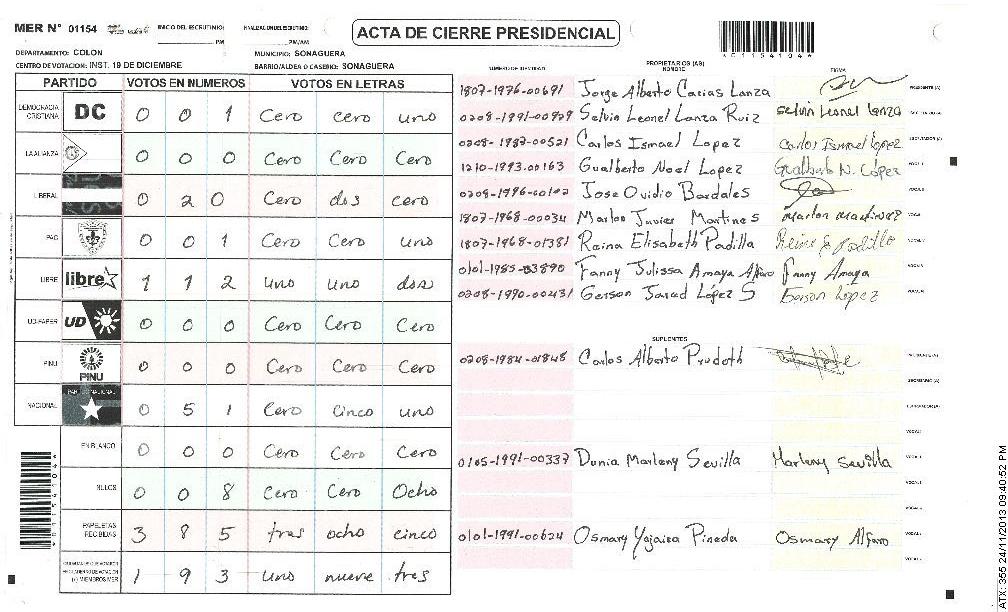 MER N° 01154 INICIO DEL ESCRUTINIO: FINALIZACION DEL ESCRUTINIO: ACTA DE CIERRE PRESIDENCIAL
PM PM/AM
DEPARTAMENTO: COLON MUNICIPIO: SONAGUERA
CENTRO DE VOTACION: INST. 19 DE DICIEMBRE BARRIO/ALDEA O CASERIO: SONAGUERA
PARTIDO VOTOS EN NUMEROS VOTOS EN LETRAS
DEMOCRACIA CRISTIANA DC 0 0 1 Cero cero uno
LA ALIANZA 0 0 0 Cero Cero Cero
LIBERAL 0 2 0 Cero dos cero
PAC 0 0 1 Cero Cero uno
LIBRE libre 1 1 2 uno uno dos
UD-FAPER UD 0 0 0 Cero Cero Cero
PINU PINU 0 0 0 Cero Cero Cero
NACIONAL 0 5 1 Cero cinco uno
EN BLANCO 0 0 0 Cero Cero Cero
NULOS 0 0 8 Cero Cero Ocho
PAPELETAS RECIBIDAS 3 8 5 tres ocho cinco
(+) MIEMBROS MER 1 9 3 uno nueve tres
NUMERO DE IDENTIDAD PROPIETARIOS (AS) NOMBRE FIRMA
1807-1976-00691 Jorge Alberto Carias Lanza PRESIDENTE (A)
0208-1991-00979 Selvin Leonel Lanza Ruiz Selvin Leonel Lanza
0208-1987-00521 Carlos Ismael Lopez Carlos Ismael Lopez
1210-1993-00163 Gualberto Noel Lopez Gualberto N. López
0208-1996-00102 Jose Ovidio Bardales
1807-1968-00034 Marlon Javier Martines Marlon Martinez
1807-1968-01381 Reina Elisabeth Padilla Reina E Padilla
0101-1985-03890 Fanny Julissa Amaya Alfaro Fanny Amaya
0208-1990-00431 Gerson Jarad López S Gerson López
SUPLENTES
0208-1984-01848 Carlos Alberto Prudoth
SECRETARIO (A)
ESCRUTADOR (A)
0105-1991-00337 Dunia Marleny Sevilla Marleny Sevilla
0101-1991-00624 Osmary Yajaira Pineda Osmary Alfaro
ATX: 355 24/11/2013 09:40:52 PM